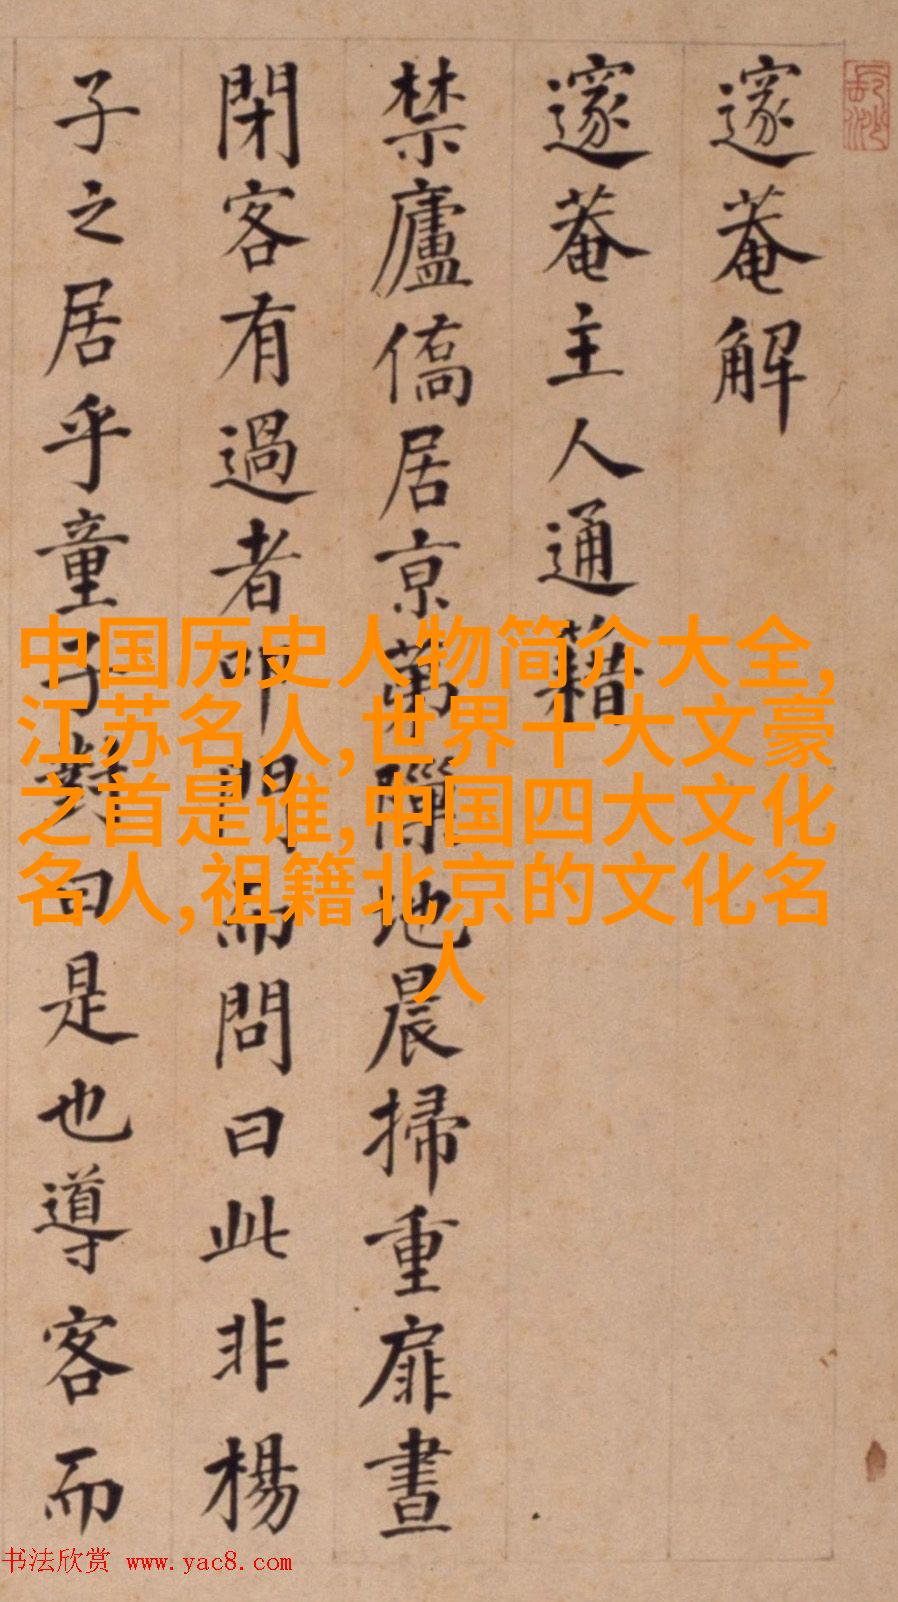 邃菴解
邃菴主人通籍
禁廬僑居京萬閙地晨掃重扉晝
閉客有過者叩門而問曰此非楊
子之居乎童子對曰是也導客而
中国历史人物简介大全,
江苏名人,世界十大文豪
之首是谁,中国四大文化
名人,祖籍北京的文化名
人
书法欣赏 www.yac8.com